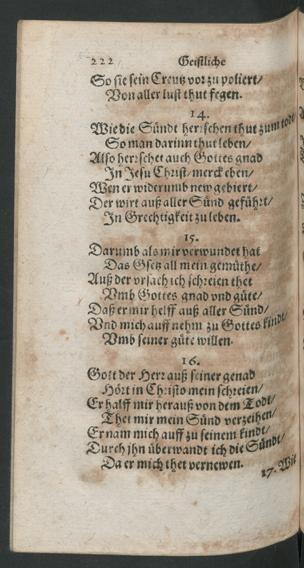 222 Geistliche
So sie sein Creutz vor zu poliert/
Von aller lust thut fegen.
14.
Wie die Sündt herrschen thut zum todt
So man darinn thut leben/
Also herrschet auch Gottes gnad
In Jesu Christ/ merck eben/
Wen er widerumb new gebiert/
Der wirt auß aller Sünd geführt/
In Grechtigkeit zu leben.
15.
Darumb als mir verwundet hat
Das Gsetz all mein gemüthe/
Auß der vrsach ich schreien thet
Vmb Gottes gnad vnd güte/
Daß er mir helff auß aller Sünd/
Vnd mich auff nehm zu Gottes kindt/
Vmb seiner güte willen.
16.
Gott der Herr auß seiner genad
Hört in Christo mein schreien/
Er halff mir herauß von dem Todt/
Thet mir mein Sünd verzeihen/
Er nam mich auff zu seinem kindt/
Durch jhn überwandt ich die Sündt/
Da er mich thet vernewen.
17. Wit